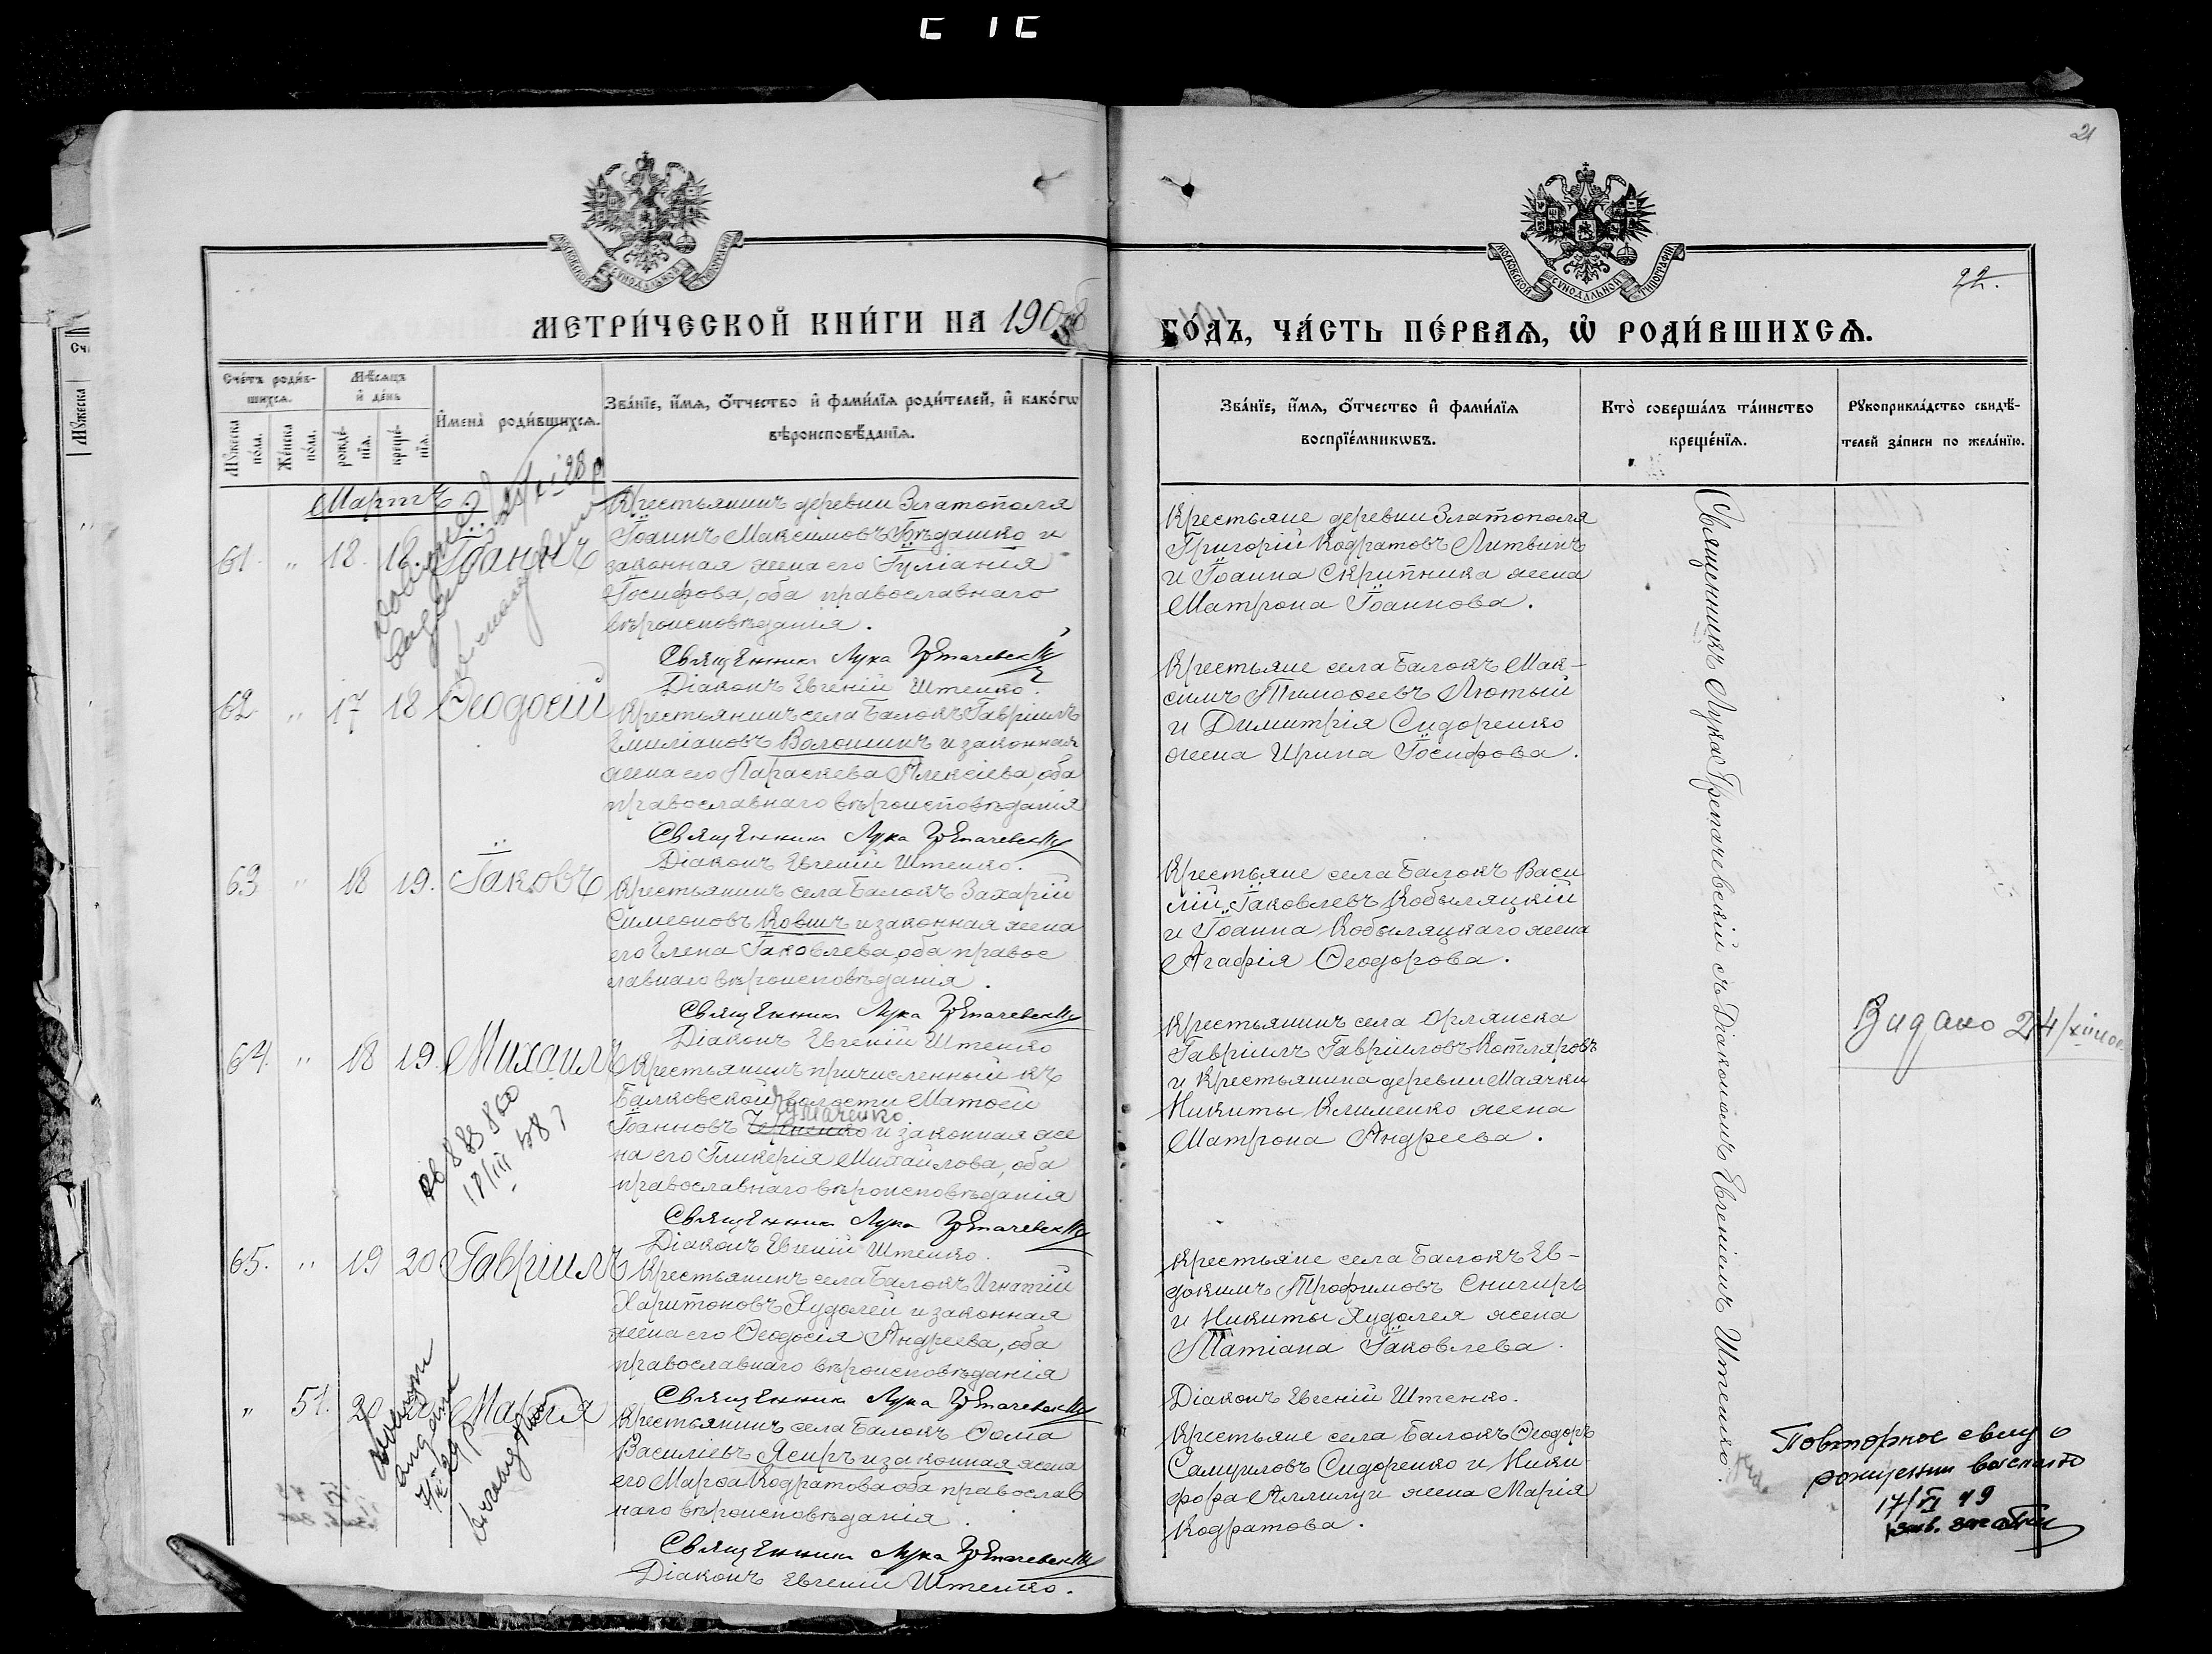 21
МОСКОВСКОЙ СѴНОДАЛЬНОЙ ТИПОГРАФІИ
МОСКОВСКОЙ СѴНОДАЛЬНОЙ ТИПОГРАФІИ
22.
МЕТРИ́ЧЕСКОЙ КНИ́ГИ НА 1908
ГО́ДЪ, ЧА́СТЬ ПЕ́РВАѦ, Ѡ҆ РОДИ́ВШИХСѦ.
Сче́тъ роди́в-
шихсѧ.
Мꙋ́жеска по́ла.
Же́нска по́ла.
Мѣ́сѧцъ
и҆ де́нь
рожде́-нїѧ.
креще́-нїѧ.
И҆мена̀ роди́вшихсѧ.
Зва́нїе, и҆́мѧ, ѻ҆́тчество и҆ фами́лїѧ роди́телей, и҆ како́гѡ
вѣроисповѣ́данїѧ.
Зва́нїе, и҆́мѧ, ѻ҆́тчество и҆ фами́лїѧ
воспрїе́мникѡвъ.
Кто̀ соверша́лъ та́инство
креще́нїѧ.
Рꙋкоприкла́дство свидѣ́-
телей за́писи по жела́нїю.
Мартъ
61. " 18. 18. Іоаннъ
Крестьянинъ деревни Златополя
Іоаннъ Максимовъ Бѣдашко и
законная жена его Іуліанія
Іосифова, оба православнаго
вѣроисповѣданія.
Священникъ Лука
Діаконъ Евгеній Штенко.
Крестьяне деревни Златополя
Григорій Кодратовъ Литвинъ
и Іоанна Скрипника жена
Матрона Іоаннова.
62 " 17 18 Ѳеодосій
Крестьянинъ села Балокъ Гавріилъ
Емиліановъ Волошинъ и законная
жена его Параскева Алексіева, оба
православнаго вѣроисповѣданія
Священникъ Лука
Діаконъ Евгеній Штенко.
Крестьяне села Балокъ Мак-
симъ Тимоѳеевъ Лютый
и Димитрія Сидоренко
жена Ирина Іосифова.
63 " 18 19. Іаковъ
Крестьянинъ села Балокъ Захарій
Симеоновъ Ковшъ и законная жена
его Елена Іаковлева, оба правос
лавнаго вѣроисповѣданія.
Священникъ Лука
Діаконъ Евгеній Штенко
Крестьяне села Балокъ Васи
лій Іаковлевъ Кобыляцкій
и Іоанна Кобыляцкаго жена
Агафія Ѳеодорова.
64. " 18 19. Михаилъ
Крестьянинъ причисленный къ
Балковской волости Матѳей
Іоанновъ и законная же
на его Гликерія Михайлова, оба
православнаго вѣроисповѣданія
Священникъ Лука
Діаконъ Евгеній Штенко.
Крестьянинъ села Орлянска
Гавріилъ Гавріиловъ Котляровъ
и Крестьянина деревни Маячки
Никиты Клименко жена
Матрона Андреева.
Видано 24/XII
65. " 19 20 Гавріилъ
Крестьянинъ села Балокъ Игнатій
Харитоновъ Худолей и законная
жена его Ѳеодосія Андреева, оба
православнаго вѣроисповѣданія
Священникъ Лука
Діаконъ Евгеній Штенко.
Крестьяне села Балокъ Ев-
докимъ Трофимовъ Снигирь
и Никиты Худолея жена
Татіана Іаковлева.
" 51. 20 Марѳа
Крестьянинъ села Балокъ Ѳома
Василіевъ Ясиръ и законная жена
его Марѳа Кодратова оба православ
наго вѣроисповѣданія.
Священникъ Лука
Діаконъ Евгеній Штенко.
Крестьяне села Балокъ Ѳеодоръ
Самуиловъ Сидоренко и Ники
фора жена Марія
Кодратова.
Священникъ Лука Грепачевскій съ Діакономъ Евгеніемъ Штенко.
Повторное
17/VI 49